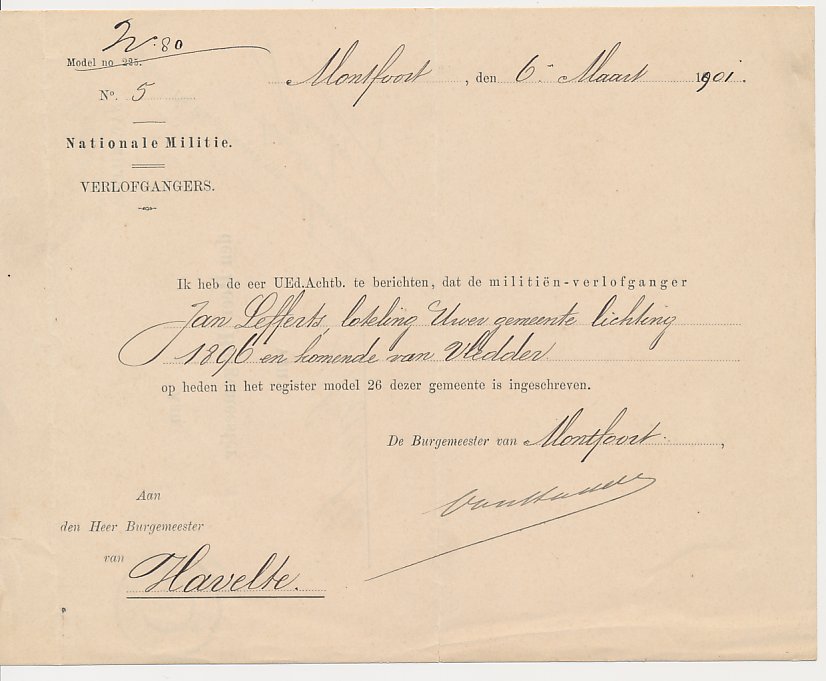 N. 80
Model no 225.
Montfoort, den 6 Maart 1901.
No. 5
Nationale Militie.
VERLOFGANGERS.
Ik heb de eer UEd.Achtb. te berichten, dat de militiën-verlofganger
Jan Lefferts, loteling Uwer gemeente lichting
1896 en komende van Vledder
op heden in het register model 26 dezer gemeente is ingeschreven.
De Burgemeester van Montfoort,
Aan
den Heer Burgemeester
van
Havelte.